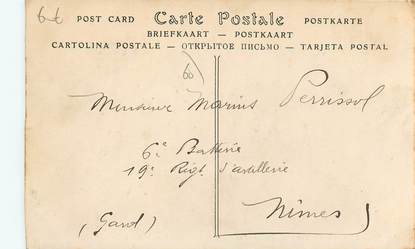 6€
POST CARD Carte Postale POSTKARTE
BRIEFKAART — POSTKAART
CARTOLINA POSTALE — ОТКРЫТОЕ ПИСЬМО — TARJETA POSTAL
Monsieur Marius Perrissol
6e Batterie
19e Rigt d'artillerie
Nîmes
(Gard)